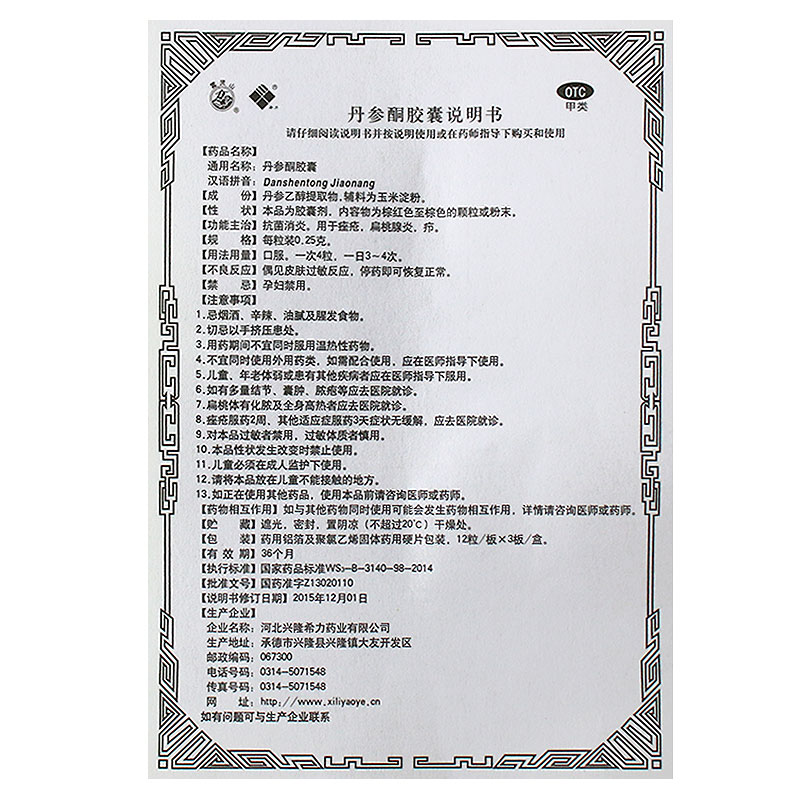 雾灵山
®
®
OTC
甲类
丹参酮胶囊说明书
请仔细阅读说明书并按说明使用或在药师指导下购买和使用
【药品名称】
通用名称：丹参酮胶囊
汉语拼音：Danshentong Jiaonang
【成 份】丹参乙醇提取物，辅料为玉米淀粉。
【性 状】本品为胶囊剂，内容物为棕红色至棕色的颗粒或粉末。
【功能主治】抗菌消炎。用于痤疮，扁桃腺炎，疖。
【规 格】每粒装0.25克。
【用法用量】口服。一次4粒，一日3~4次。
【不良反应】偶见皮肤过敏反应，停药即可恢复正常。
【禁 忌】孕妇禁用。
【注意事项】
1.忌烟酒、辛辣、油腻及腥发食物。
2.切忌以手挤压患处。
3.用药期间不宜同时服用温热性药物。
4.不宜同时使用外用药类，如需配合使用，应在医师指导下使用。
5.儿童、年老体弱或患有其他疾病者应在医师指导下服用。
6.如有多量结节、囊肿、脓疱等应去医院就诊。
7.扁桃体有化脓及全身高热者应去医院就诊。
8.痤疮服药2周、其他适应症服药3天症状无缓解，应去医院就诊。
9.对本品过敏者禁用，过敏体质者慎用。
10.本品性状发生改变时禁止使用。
11.儿童必须在成人监护下使用。
12.请将本品放在儿童不能接触的地方。
13.如正在使用其他药品，使用本品前请咨询医师或药师。
【药物相互作用】如与其他药物同时使用可能会发生药物相互作用，详情请咨询医师或药师。
【贮 藏】遮光，密封，置阴凉（不超过20℃）干燥处。
【包 装】药用铝箔及聚氯乙烯固体药用硬片包装，12粒/板×3板/盒。
【有 效 期】36个月
【执行标准】国家药品标准WS₃-B-3140-98-2014
【批准文号】国药准字Z13020110
【说明书修订日期】2015年12月01日
【生产企业】
企业名称：河北兴隆希力药业有限公司
生产地址：承德市兴隆县兴隆镇大友开发区
邮政编码：067300
电话号码：0314-5071548
传真号码：0314-5071548
网 址：http://www.xiliyaoye.cn
如有问题可与生产企业联系